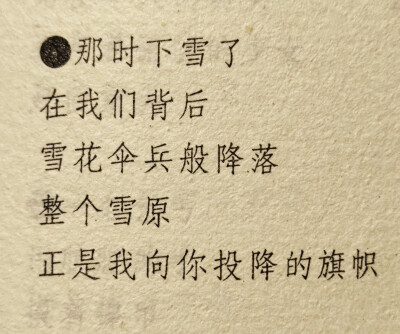 ●那时下雪了
在我们背后
雪花伞兵般降落
整个雪原
正是我向你投降的旗帜